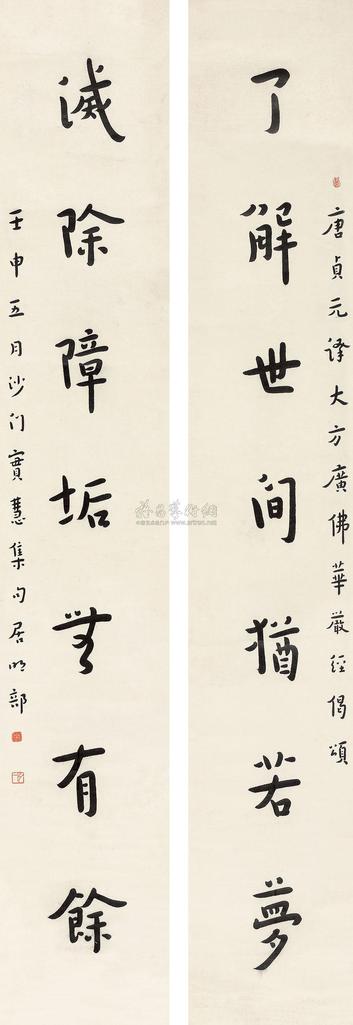 唐貞元譯大方廣佛華嚴經偈頌
了解世间猶若夢
滅除障垢無有餘
壬申五月沙门實慧集句居明部